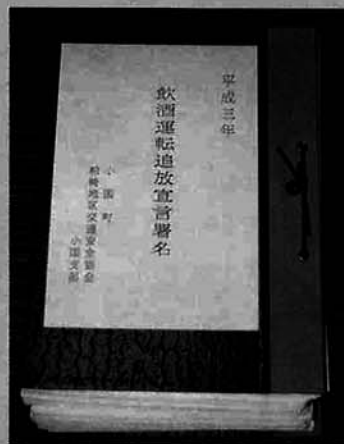 平成三年
飲酒運転追放宣言署名
小国町
柏崎地区交通安全協会
小国支部